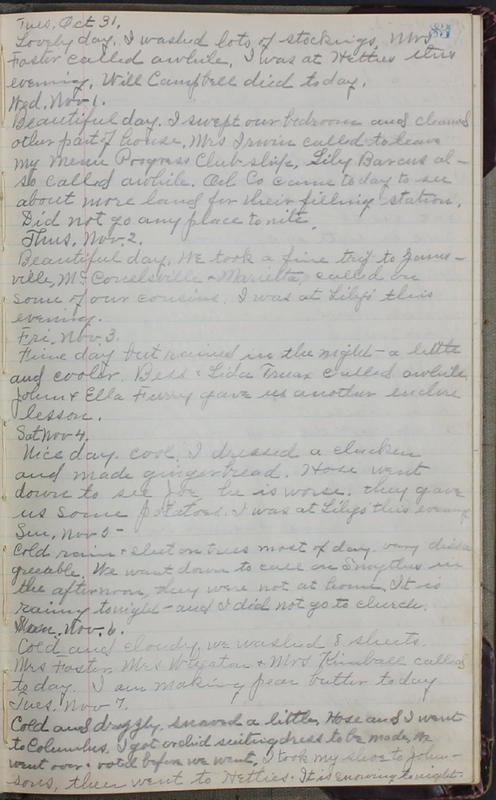 Tues, Oct 31,
85
Lovely day. I washed lots of stockings, Mrs
Foster called awhile, I was at Hetties this
evening, Will Campbell died today.
Wed, Nov. 1.
Beautiful day. I swept our bedroom and cleaned
other part of house, Mrs Irwin called to leave
my menu Progress Club slip, Lily Barcus al-
so called awhile. Oil Co came today to see
about more land for their filling station.
Did not go any place to nite.
Thus, Nov. 2.
Beautiful day. We took a fine trip to Zanes-
ville, Mc Conelsville & Marietta, called on
some of our cousins. I was at Lilys this
evening.
Fri, Nov. 3.
Fine day but rained in the night - a little
and cooler. Bess & Lida Truax called awhile
John & Ella Furry gave us another
lesson.
Sat Nov 4.
Nice day. cool, I dressed a chicken
and made gingerbread. Hose went
down to see Joe, he is worse. they gave
us some potatoes. I was at Lilys this evening
Sun, Nov 5-
Cold rain & sleet on trees most of day. very disa
greeable. We went down to call on Smythes in
the afternoon, they were not at home. It is
rainy tonight - and I did not go to church.
Nov. 6.
Cold and cloudy, we washed 8 sheets.
Mrs Foster, Mrs & Mrs Kimball called
today. I am making pear butter today
Tues. Nov 7.
Cold and drizzly. snowed a little, Hose and I went
to Columbus. I got orchid suiting dress to be made, we
went over & voted before we went, I took my shoe to John-
sons, then went to Hetties. It is snowing tonight.